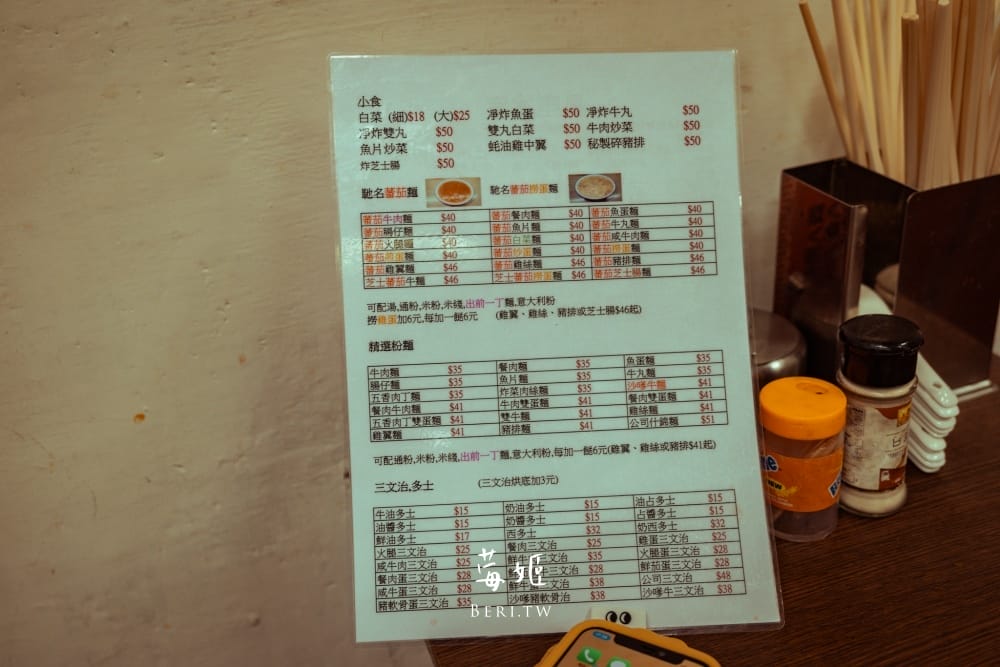 小食
白菜 (細)$18 (大)$25 淨炸魚蛋 $50 淨炸牛丸 $50
淨炸雙丸 $50 雙丸白菜 $50 牛肉炒菜 $50
魚片炒菜 $50 蚝油雞中翼 $50 秘製碎豬排 $50
炸芝士腸 $50
馳名蕃茄麵 馳名蕃茄撈蛋麵
蕃茄牛肉麵 $40 蕃茄餐肉麵 $40 蕃茄魚蛋麵 $40
蕃茄腸仔麵 $40 蕃茄魚片麵 $40 蕃茄牛丸麵 $40
蕃茄火腿麵 $40 蕃茄白菜麵 $40 蕃茄咸牛肉麵 $40
蕃茄煎蛋麵 $40 蕃茄炒蛋麵 $40 蕃茄撈蛋麵 $40
蕃茄雞翼麵 $46 蕃茄雞絲麵 $46 蕃茄豬排麵 $46
芝士蕃茄牛麵 $46 芝士蕃茄撈蛋麵 $46 蕃茄芝士腸麵 $46
可配湯,通粉,米粉,米綫,出前一丁麵,意大利粉
撈雞蛋加6元,每加一餸6元 (雞翼、雞絲、豬排或芝士腸$46起)
精選粉麵
牛肉麵 $35 餐肉麵 $35 魚蛋麵 $35
腸仔麵 $35 魚片麵 $35 牛丸麵 $35
五香肉丁麵 $35 炸菜肉絲麵 $35 沙嗲牛麵 $41
餐肉牛肉麵 $41 牛肉雙蛋麵 $41 餐肉雙蛋麵 $41
五香肉丁雙蛋麵 $41 雙牛麵 $41 雞絲麵 $41
雞翼麵 $41 豬排麵 $41 公司什錦麵 $51
可配通粉,米粉,米綫,出前一丁麵,意大利粉,每加一餸6元(雞翼、雞絲或豬排$41起)
三文治,多士 (三文治烘底加3元)
牛油多士 $15 奶油多士 $15 油占多士 $15
油醬多士 $15 奶醬多士 $15 占醬多士 $15
鮮油多士 $17 西多士 $32 奶西多士 $32
火腿三文治 $25 餐肉三文治 $25 雞蛋三文治 $25
咸牛肉三文治 $25 鮮牛 三文治 $35 火腿蛋三文治 $28
餐肉蛋三文治 $28 三文治 $28 鮮茄蛋三文治 $28
咸牛蛋三文治 $28 鮮牛 三文治 $38 公司三文治 $48
豬軟骨蛋三文治 $35 沙嗲豬軟骨治 $38 沙嗲牛三文治 $38
莓姬
BERI.TW